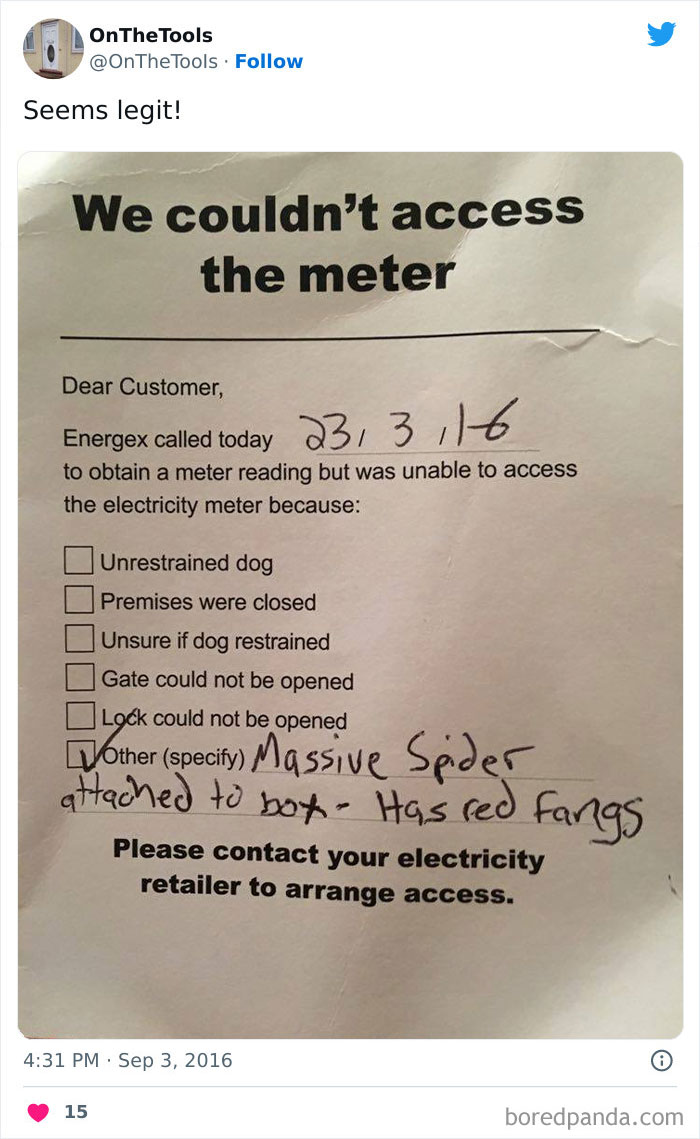 OnTheTools
@OnTheTools · Follow
Seems legit!
We couldn't access
the meter
Dear Customer,
Energex called today 23/ 3 /16
to obtain a meter reading but was unable to access
the electricity meter because:
Unrestrained dog
Premises were closed
Unsure if dog restrained
Gate could not be opened
Lock could not be opened
Other (specify) Massive Spider
attached to box - Has red fangs
Please contact your electricity
retailer to arrange access.
4:31 PM · Sep 3, 2016
15
boredpanda.com